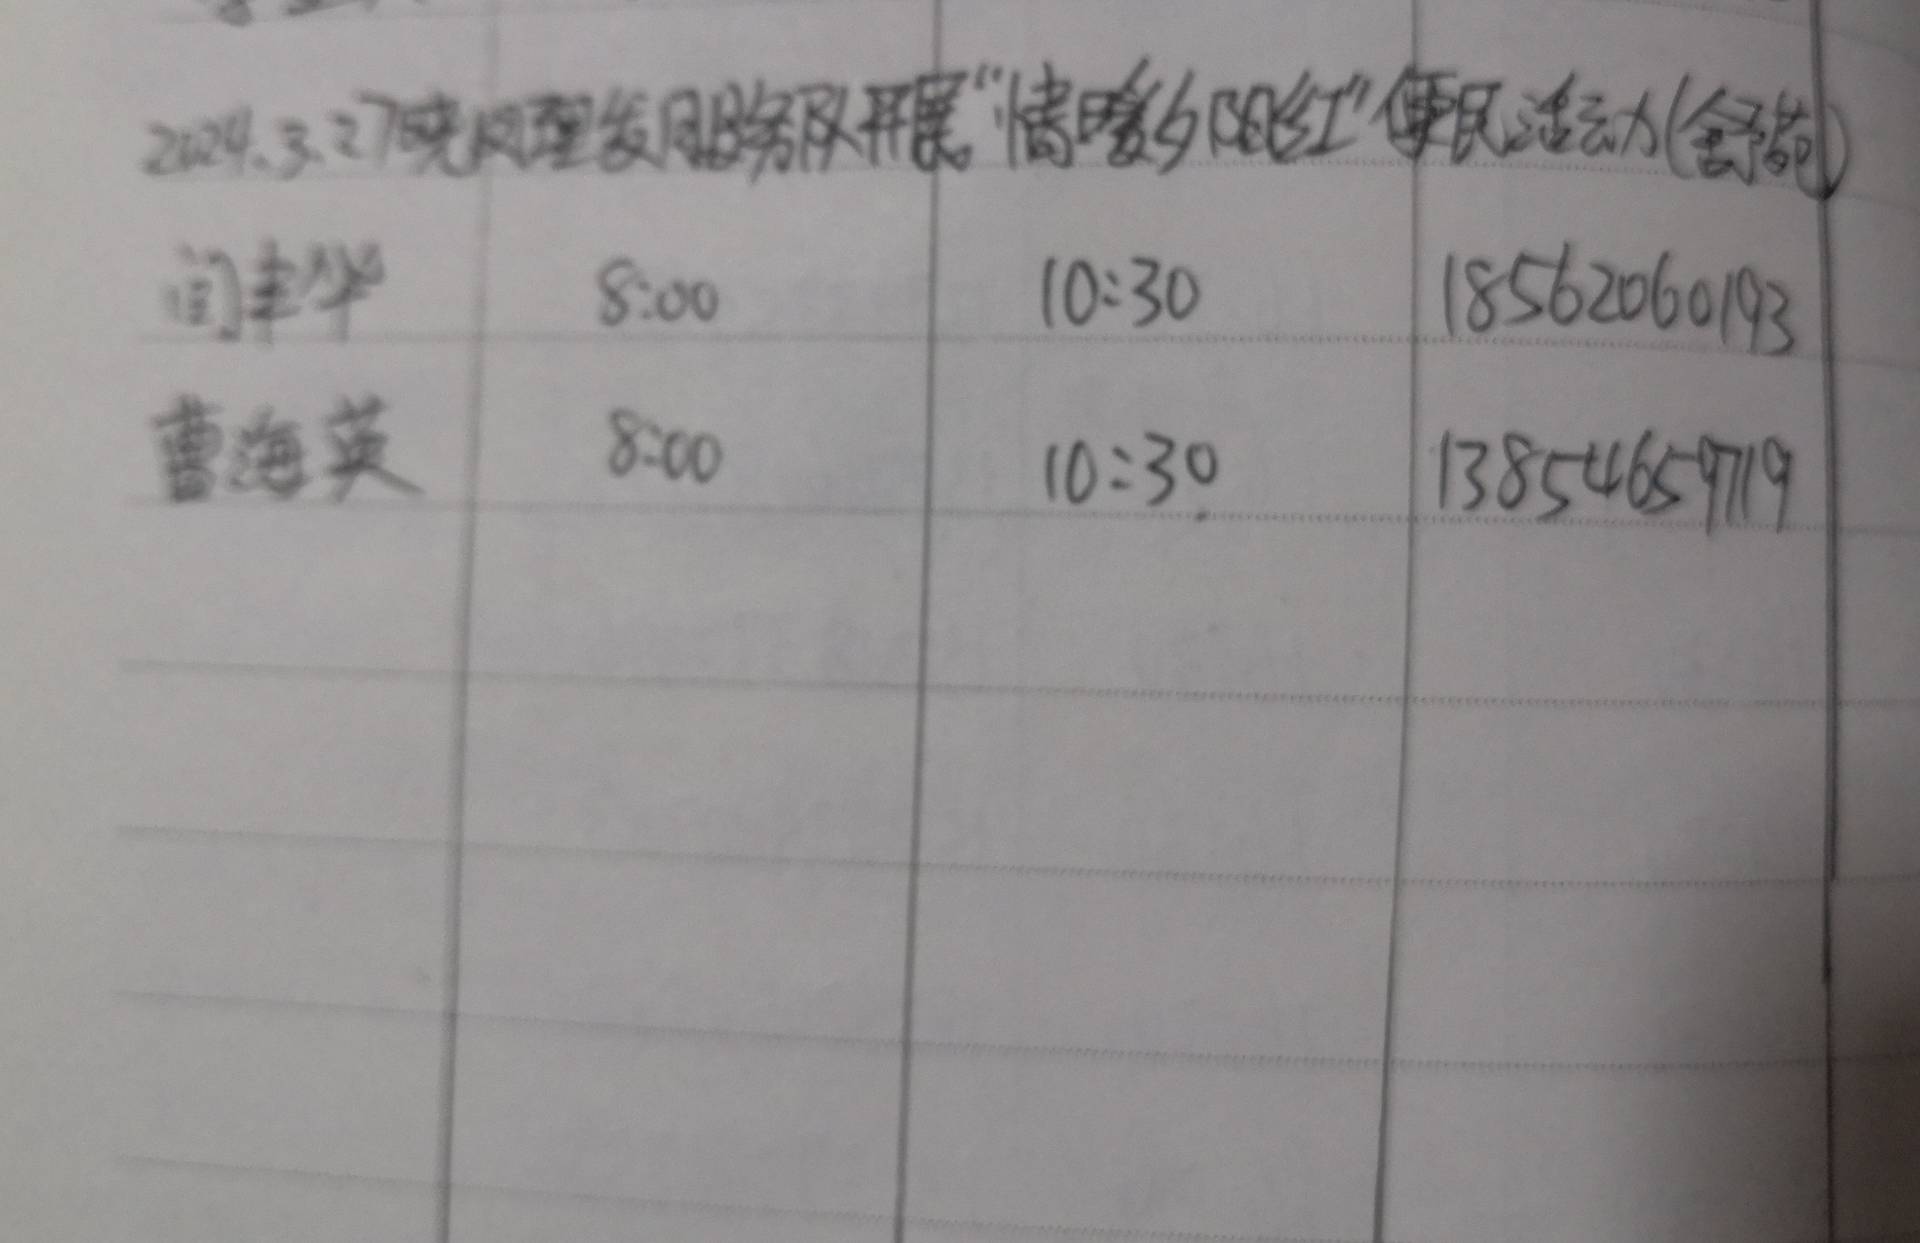 2024.3.27晓风理发服务队开展“情暖夕阳红”便民活动(舒苑)
闫丰华 8:00 10:30 18562060193
曹海英 8:00 10:30 13854659719